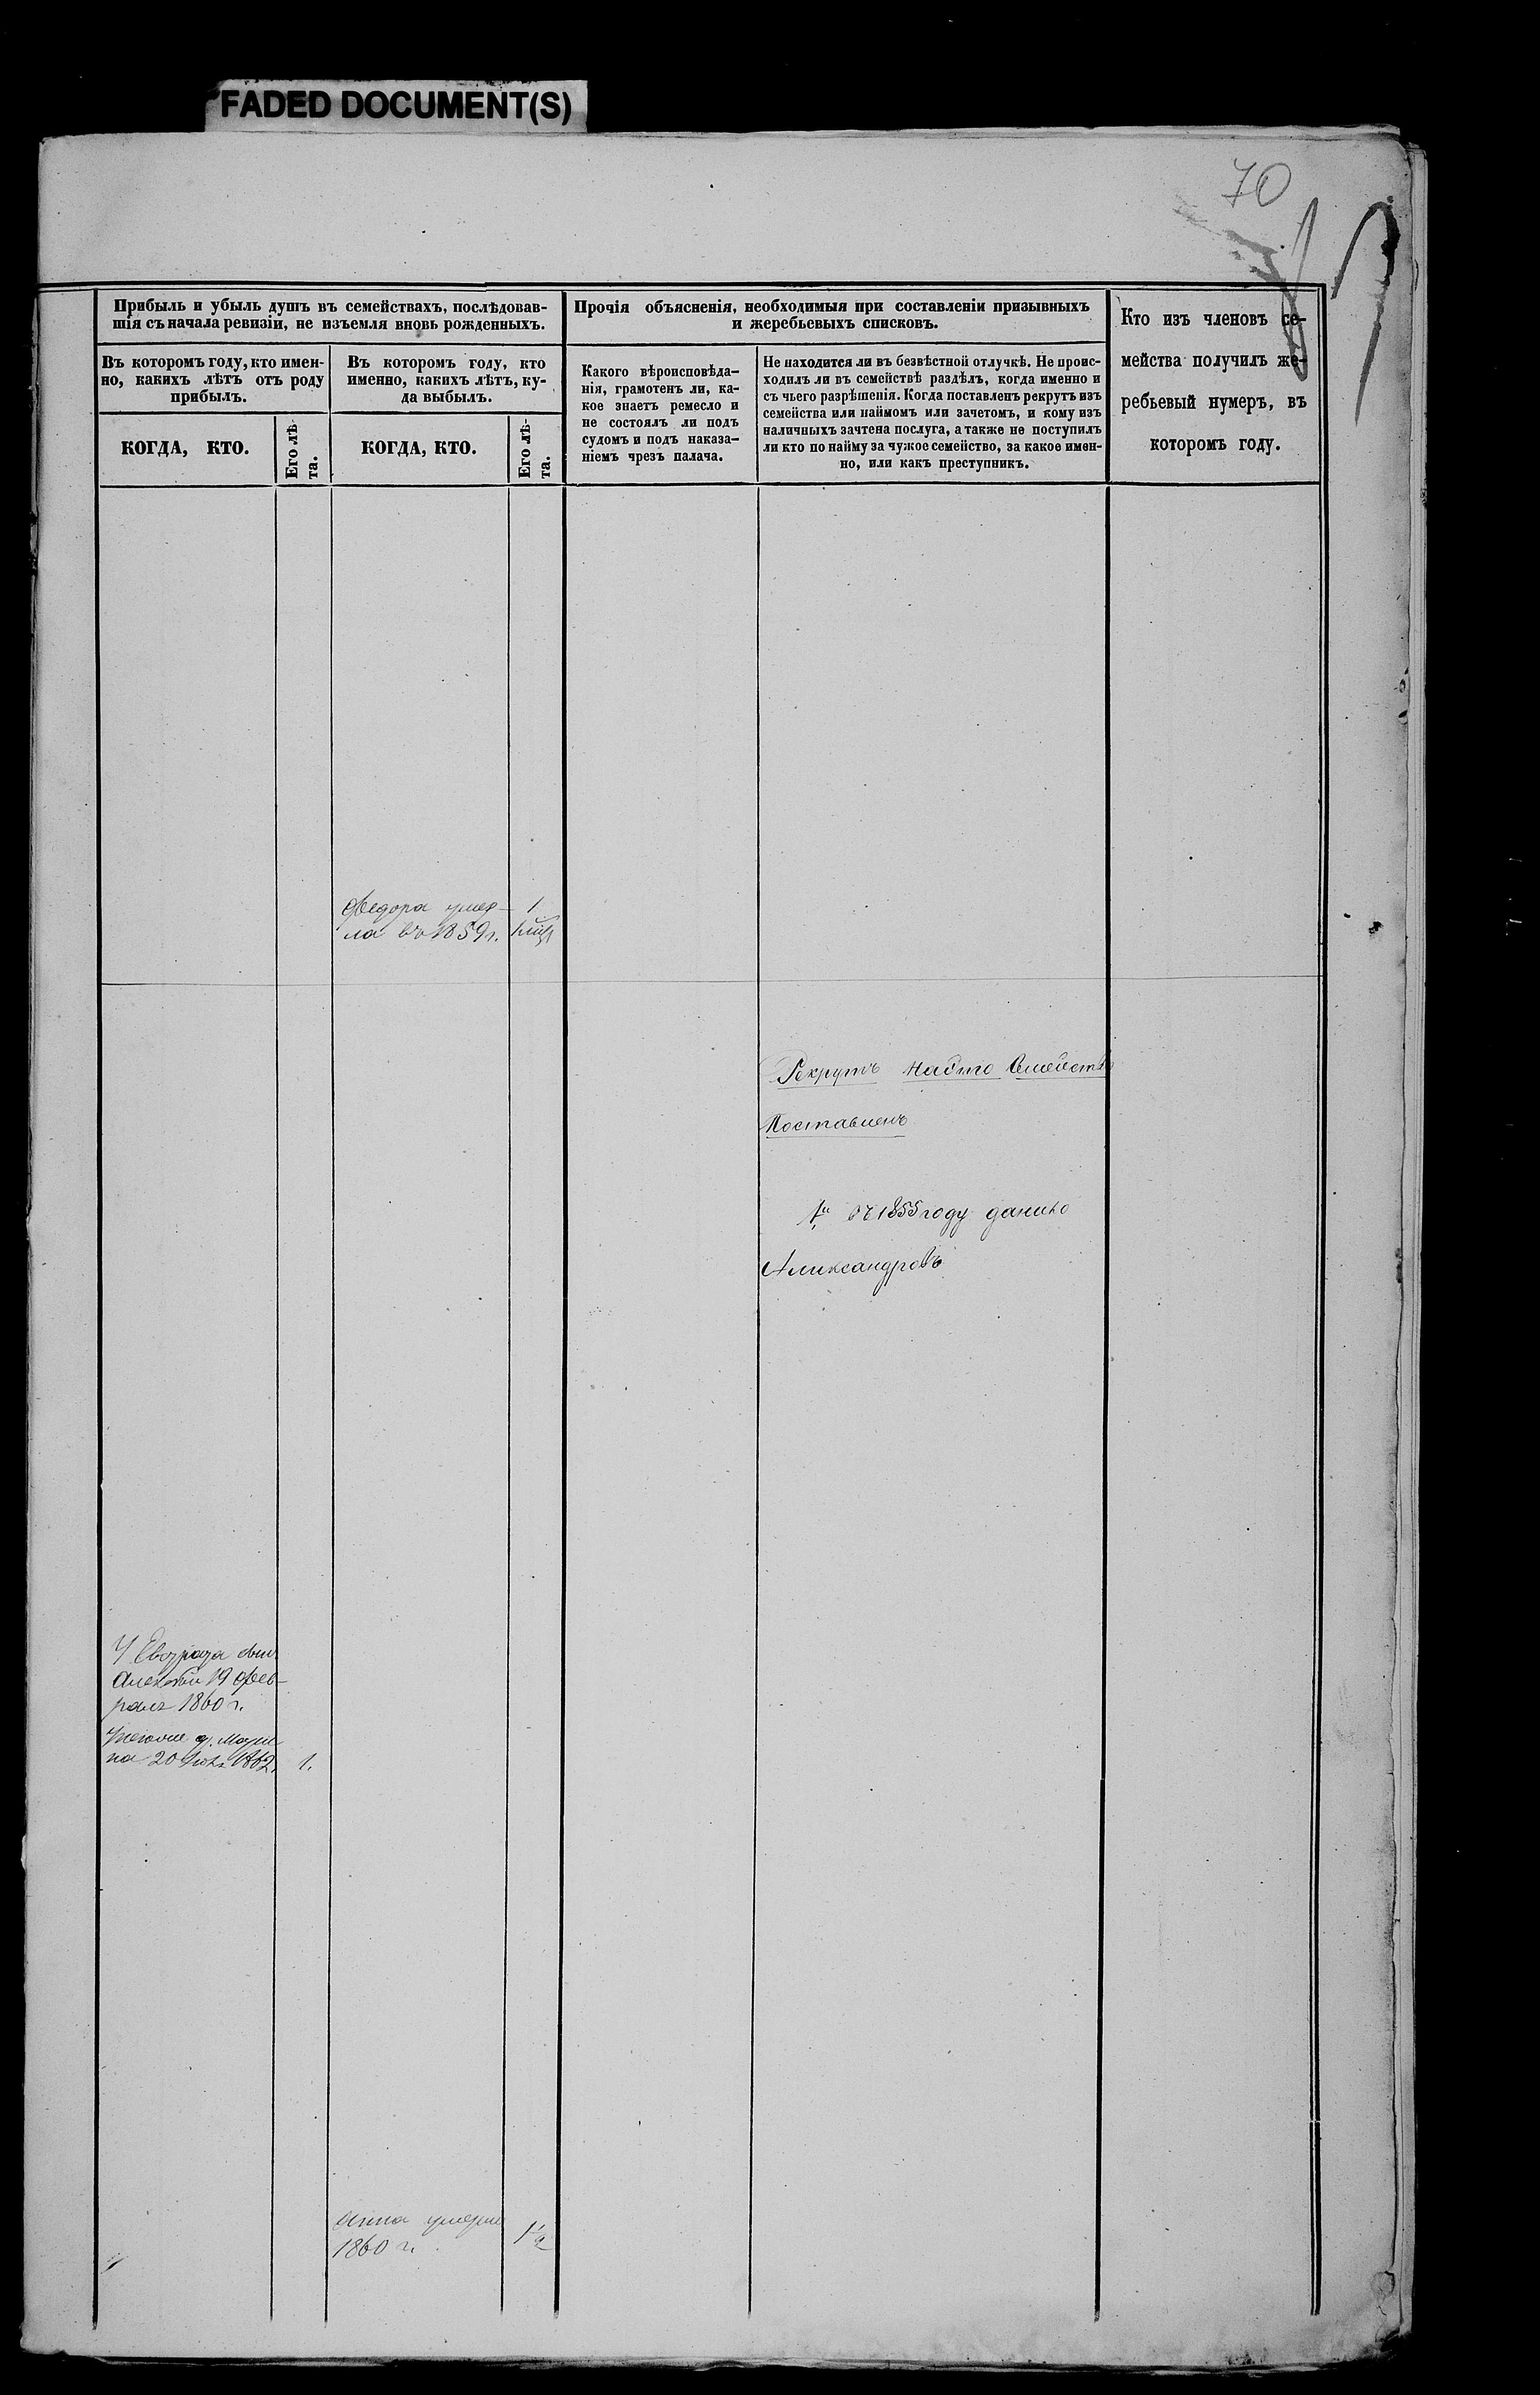 FADED DOCUMENT(S)
70
Прибыль и убыль душъ въ семействахъ, послѣдовав-
шія съ начала ревизіи, не изъемля вновь рожденныхъ.
Въ которомъ году, кто имен-
но, какихъ лѣтъ отъ роду
прибылъ.
КОГДА, КТО.
Его лѣ-
та.
Въ которомъ году, кто
именно, какихъ лѣтъ, ку-
да выбылъ.
КОГДА, КТО.
Его лѣ-
та.
Прочія объясненія, необходимыя при составленіи призывныхъ
и жеребьевыхъ списковъ.
Какого вѣроисповѣда-
нія, грамотенъ ли, ка-
кое знаетъ ремесло и
не состоялъ ли подъ
судомъ и подъ наказа-
ніемъ чрезъ палача.
Не находится ли въ безвѣстной отлучкѣ. Не проис-
ходилъ ли въ семействѣ раздѣлъ, когда именно и
съ чьего разрѣшенія. Когда поставленъ рекрутъ изъ
семейства или наймомъ или зачетомъ, и кому изъ
наличныхъ зачтена послуга, а также не поступилъ
ли кто по найму за чужое семейство, за какое имен-
но, или какъ преступникъ.
Кто изъ членовъ се-
мейства получилъ же-
ребьевый нумеръ, въ
которомъ году.
Федора умер-
ла въ 1859 г.
1
Рекрутъ
Поставленъ
въ 1855 году данило
Александровъ
Фев-
раля 1860 г.
20 1862.
1.
анна
1860 г.
1 1/2